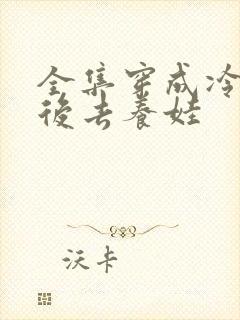 全集穿成冷
後去養娃
沃卡